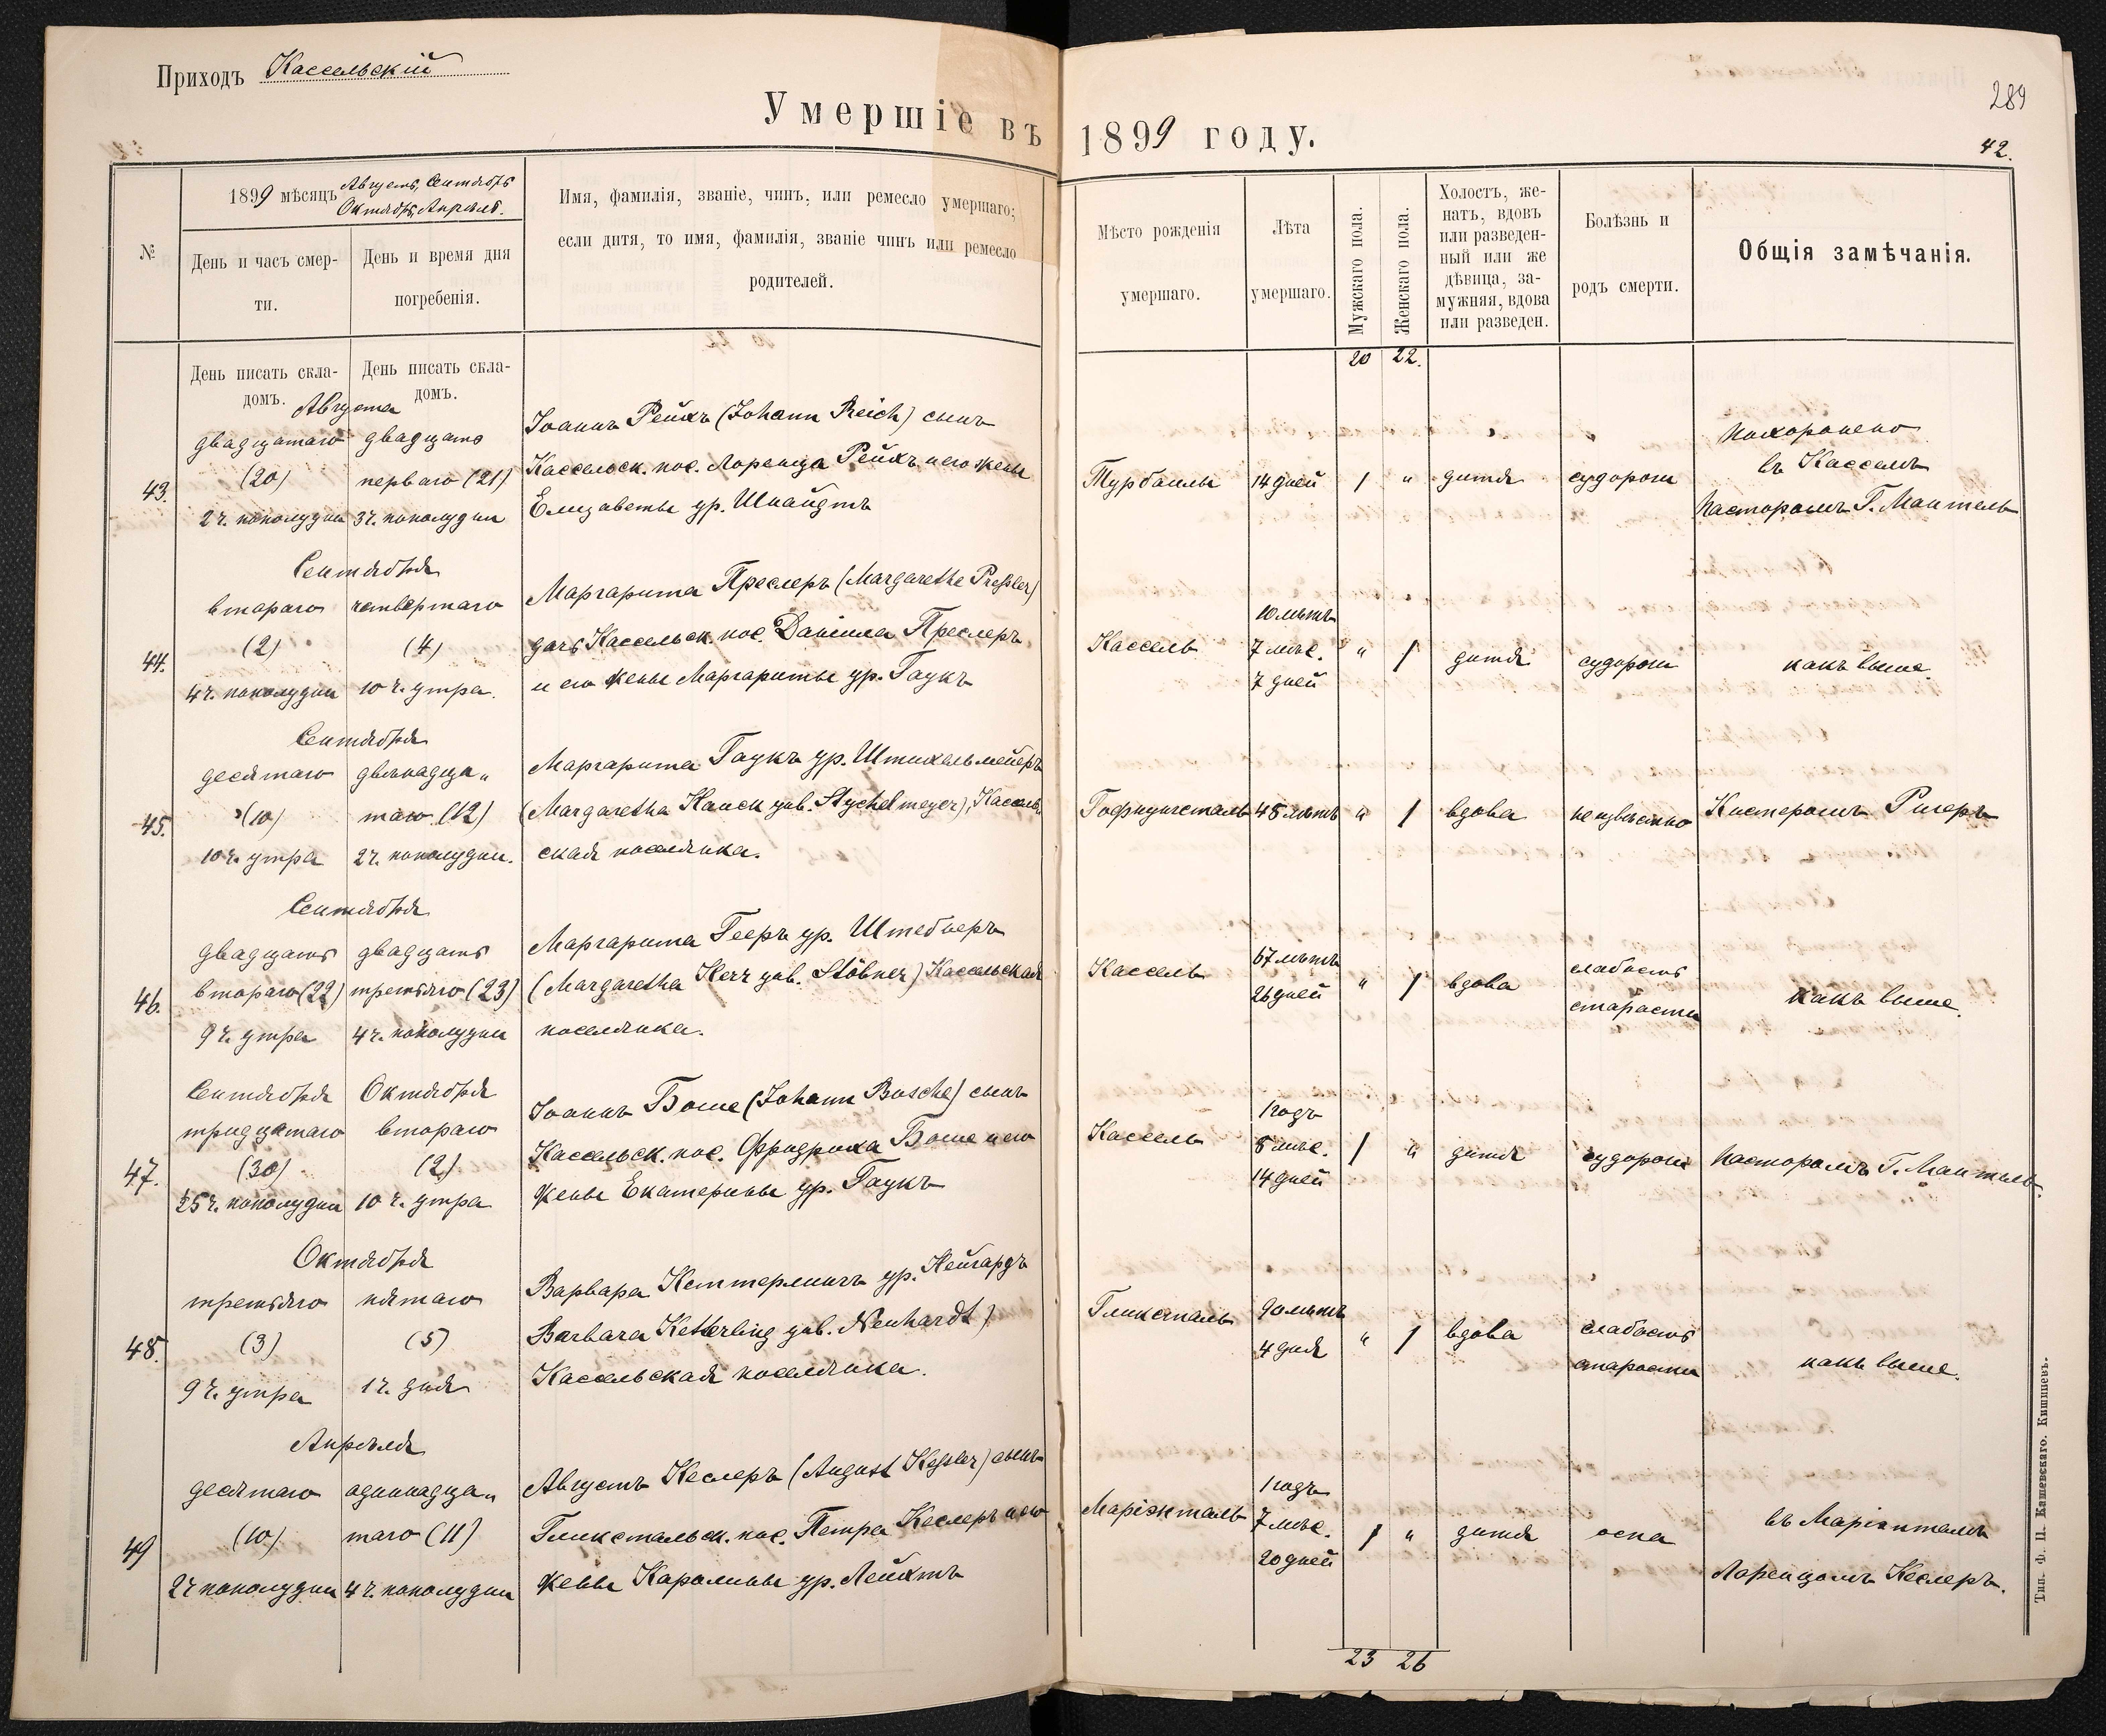 Приходъ Кассельскій
Умершіе въ 1899 году.
289
42.
№
1899 мѣсяцъ Августъ, Сентябрь
Октябрь, Апрѣль.
День и часъ смер-
ти.
День и время дня
погребенія.
Имя, фамилія, званіе, чинъ, или ремесло умершаго;
если дитя, то имя, фамилія, званіе чинъ или ремесло
родителей.
Мѣсто рожденія
умершаго.
Лѣта
умершаго.
Мужскаго пола.
Женскаго пола.
Холостъ, же-
натъ, вдовъ
или разведен-
ный или же
дѣвица, за-
мужняя, вдова
или разведен.
Болѣзнь и
родъ смерти.
Общія замѣчанія.
День писать скла-
домъ.
День писать скла-
домъ.
20 22.
Августа
43.
двадцатаго
(20)
2 ч. пополудни
двадцать
перваго (21)
3 ч. пополудни
Іоаннъ Рейхъ (Johann Reich) сынъ
Кассельск. пос. Лоренца Рейхъ и его жены
Елизаветы ур. Шнайдтъ
Турбаилы
14 дней
1
"
дитя
судороги
Похоронено
въ Касселѣ
Пасторомъ Г. Мантель
Сентября
44.
втораго
(2)
4 ч. пополудни
четвертаго
(4)
10 ч. утра.
Маргарита Преслеръ (Margarethe Preßler)
дочь Кассельск. пос. Даніила Преслеръ
и его жены Маргариты ур. Гаукъ
Кассель
10 лѣтъ
7 мѣс.
7 дней
"
1
дитя
судороги
какъ выше.
Сентября
45.
десятаго
(10)
10 ч. утра
двѣнадца„
таго (12)
2 ч. пополудни.
Маргарита Гаукъ ур. Штихельмейеръ
(Margaretha Hauck geb. Stychelmeyer), Кассель„
ская поселянка.
Гофнунгсталь
48 лѣтъ
"
1
вдова
неизвѣстно
Кистеромъ Ригеръ
Сентября
46.
двадцать
втораго (22)
9 ч. утра
двадцать
третьяго (23)
4 ч. пополудни
Маргарита Гееръ ур. Штебнеръ
(Margaretha Herr geb. Stöbner) Кассельская
поселянка.
Кассель
67 лѣтъ
26 дней
"
1
вдова
слабость
старости
какъ выше.
47.
Сентября
тридцатаго
(30)
5 ч. пополудни
Октября
втораго
(2)
10 ч. утра
Іоаннъ Боше (Johann Bosche) сынъ
Кассельск. пос. Фридриха Боше и его
жены Екатерины ур. Гаукъ
Кассель
1 годъ
8 мѣс.
14 дней
1
"
дитя
судороги
Пасторомъ Г. Мантель.
Октября
48.
третьяго
(3)
9 ч. утра
пятаго
(5)
1 ч. дня
Варвара Кеттерлингъ ур. Нейгардъ
Barbara Ketterling geb. Neuhardt)
Кассельская поселянка.
Гликсталь
90 лѣтъ
4 дня
"
1
вдова
слабость
старости
какъ выше.
Апрѣля
49
десятаго
(10)
2 ч пополудни
одиннадца„
таго (11)
4 ч. пополудни
Августъ Кеслеръ (August Keßler) сынъ
Гликстальск. пос. Петра Кеслеръ и его
жены Каролины ур. Лейхтъ
Маріэнталь
1 годъ
7 мѣс.
20 дней
1
"
дитя
оспа
въ Маріэнталѣ
Лоренцомъ Кеслеръ.
23 26
Тип. Ф. П. Кашевскаго. Кишиневъ.